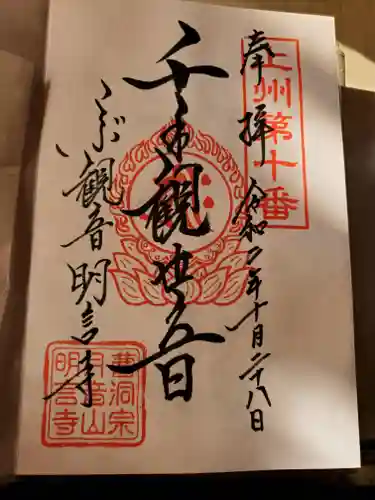 上州第十番
奉拝
令和二年十月二十八日
千手観世音
こぶ観音
明言寺
曹洞宗
月音山
明言寺